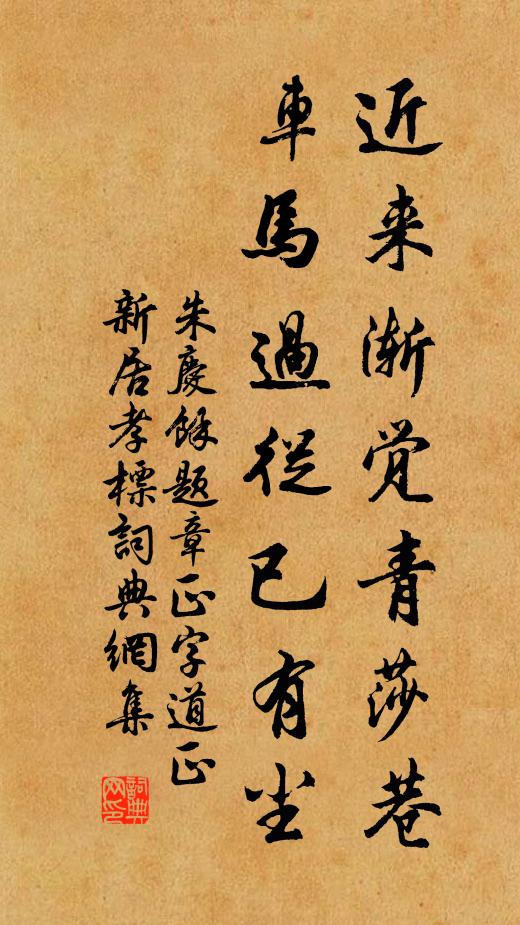 近来渐觉青莎巷
車馬過從已有尘
朱慶餘题章正字道正
新居孝標詞典網集
詞典网印